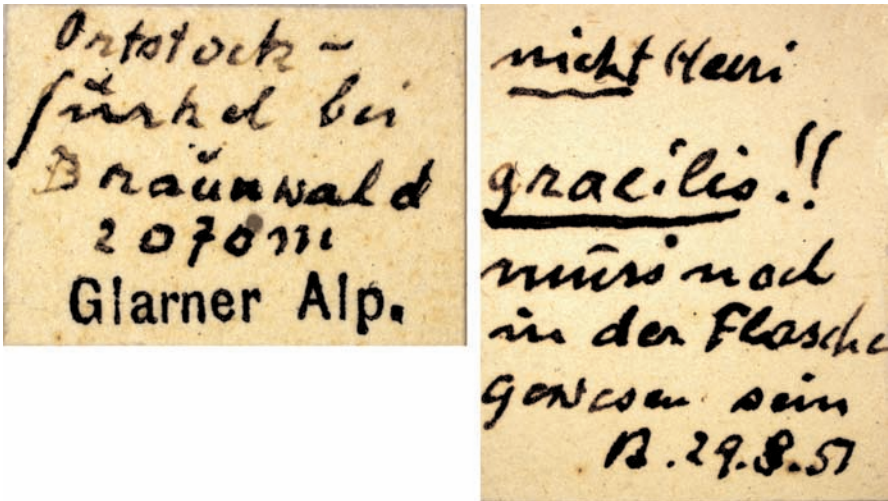 Ortstock-
furkel bei
Braunwald
2070 m
Glarner Alp.
nicht Heeri
gracilis!!
muss noch
in der Flasche
gewesen sein
B. 29.8.51